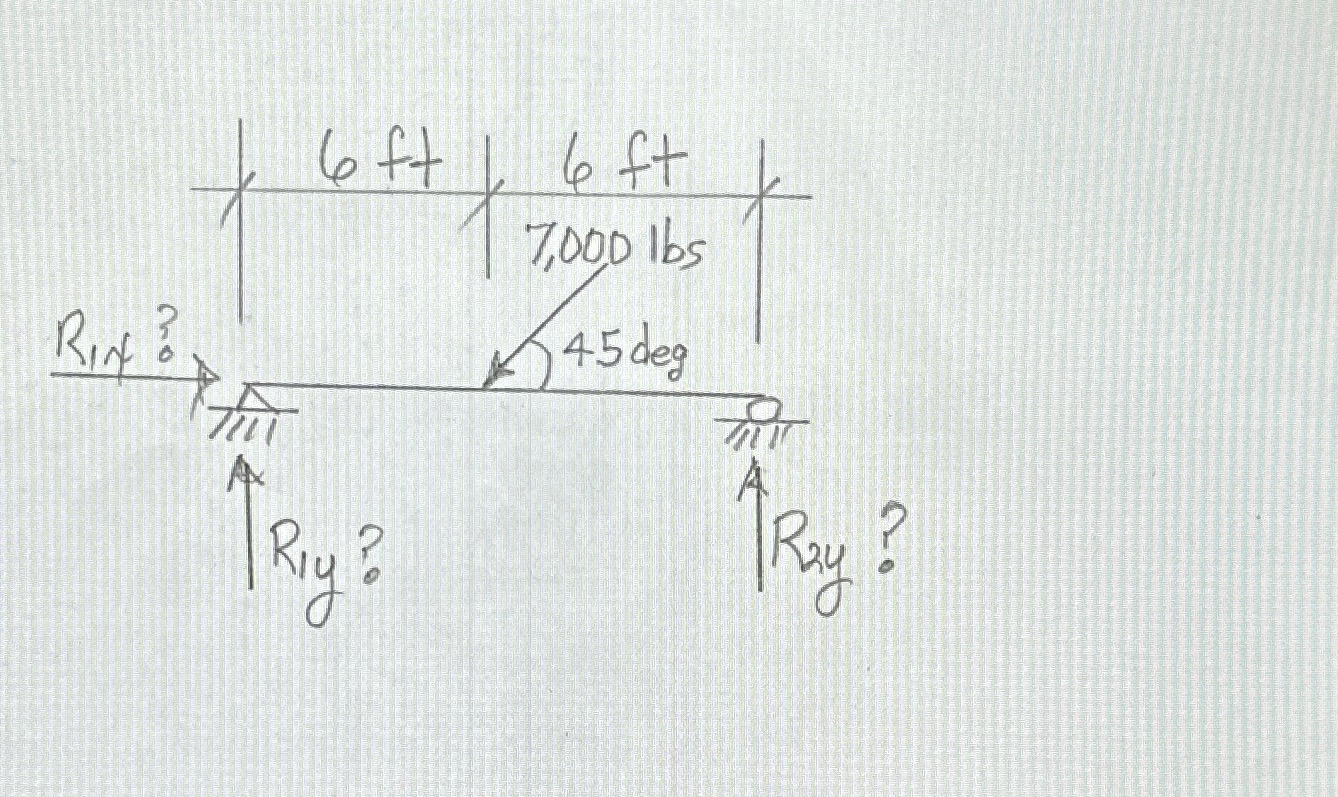 6 ft 6 ft
7,000 lbs
R1x ?
45 deg
R1y ?
R2y ?